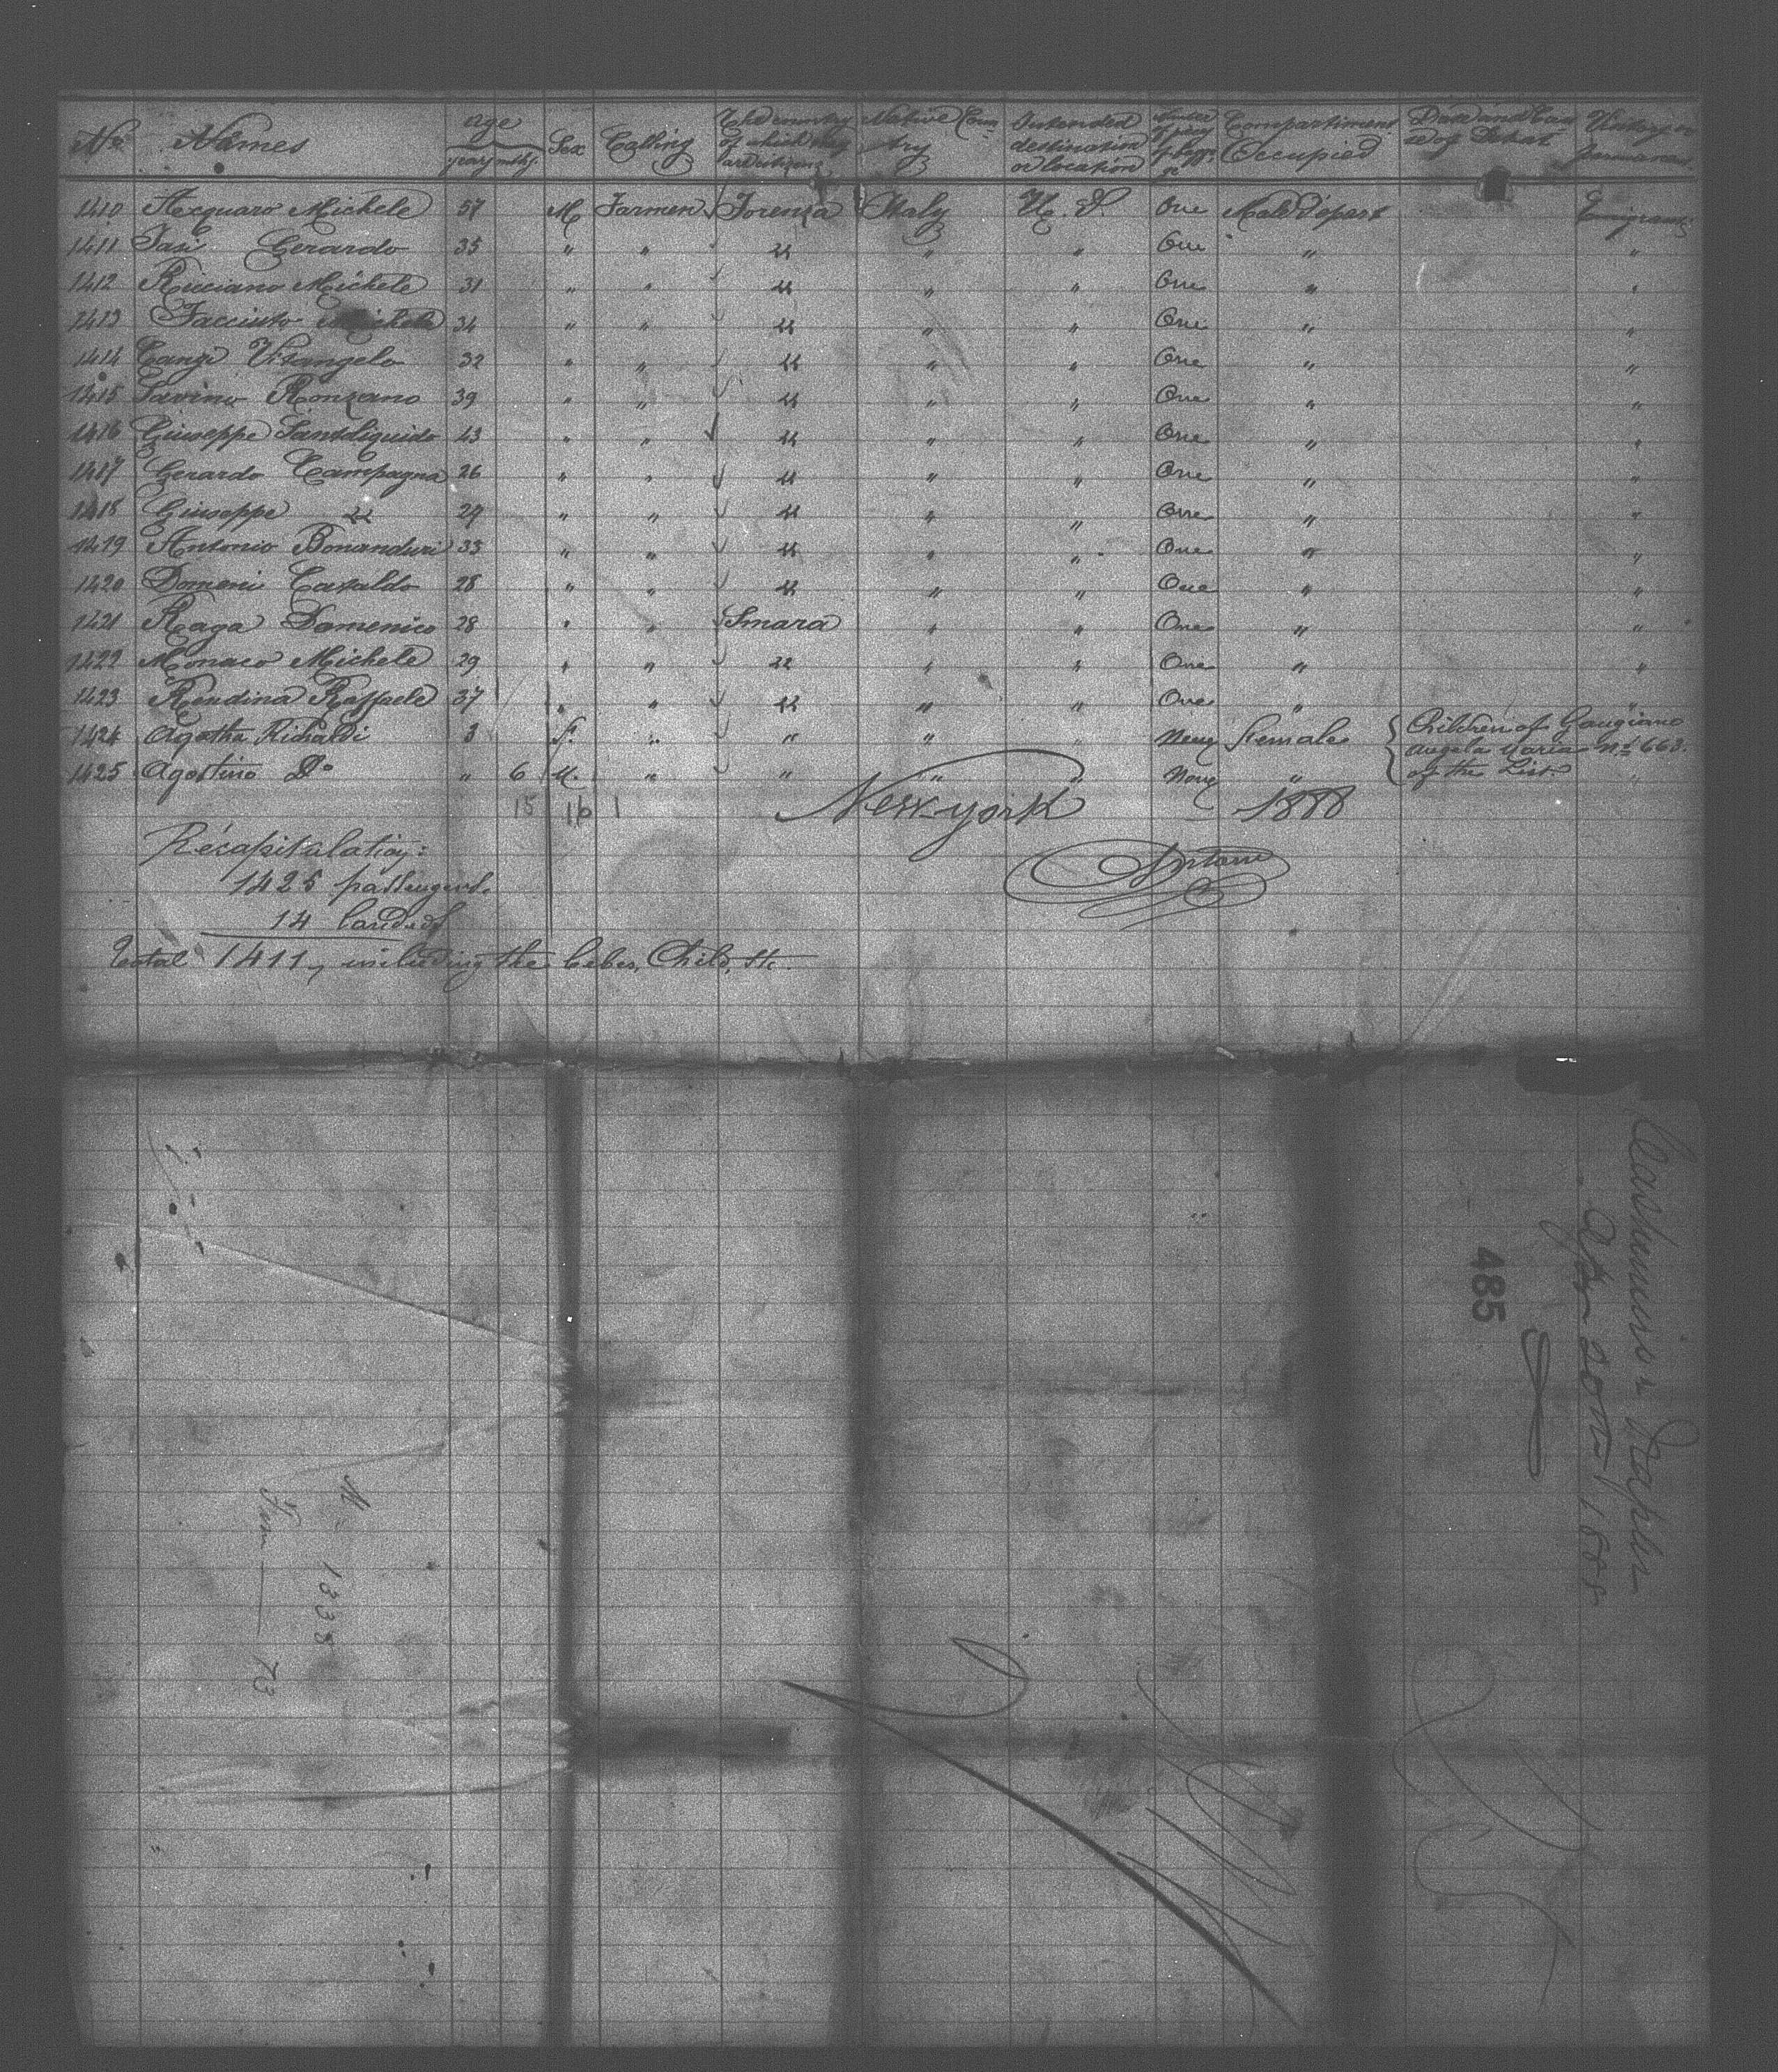 No. Names Age years mths. Sex Calling The country of which they are citizens Native Country Intended destination or location Number of pieces of bagg. Compartiment Occupied Date and Cause of Death Visitory or permanent
1410 Acquaro Michele 57 M Farmer Forenza Italy U. S. One Male Depart Emigrant
1411 Gerardo 35 " " " " " One " "
1412 Ricciano Michele 31 " " " " " One " "
1413 Facciuto Michele 34 " " " " " One " "
1414 Cange Vitangelo 32 " " " " " One " "
1415 Savino Ronzano 39 " " " " " One " "
1416 Giuseppe Santoliquido 43 " " " " " One " "
1417 Gerardo Campagna 26 " " " " " One " "
1418 Giuseppe " 29 " " " " " One " "
1419 Antonio Bonanduri 33 " " " " " One " "
1420 Domeni Cataldo 28 " " " " " One " "
1421 Raga Domenico 28 " " Smara " " One " "
1422 Monaco Michele 29 " " " " " One " "
1423 Rendina Raffaele 37 " " " " " One " "
1424 Agatha Rinaldi 3 F. " " " " None Female Children of Gaugiano
Angela Maria No. 663.
1425 Agostino Do " 6 M. " " " " None " of the List. "
15 16 1 New-york 1888
Récapitulation:
1425 passengers.
14 landed
Total 1411, including the bebes, Child, etc.
Naples
Apr 20th 1888
485
M - 1338
Fem — 73